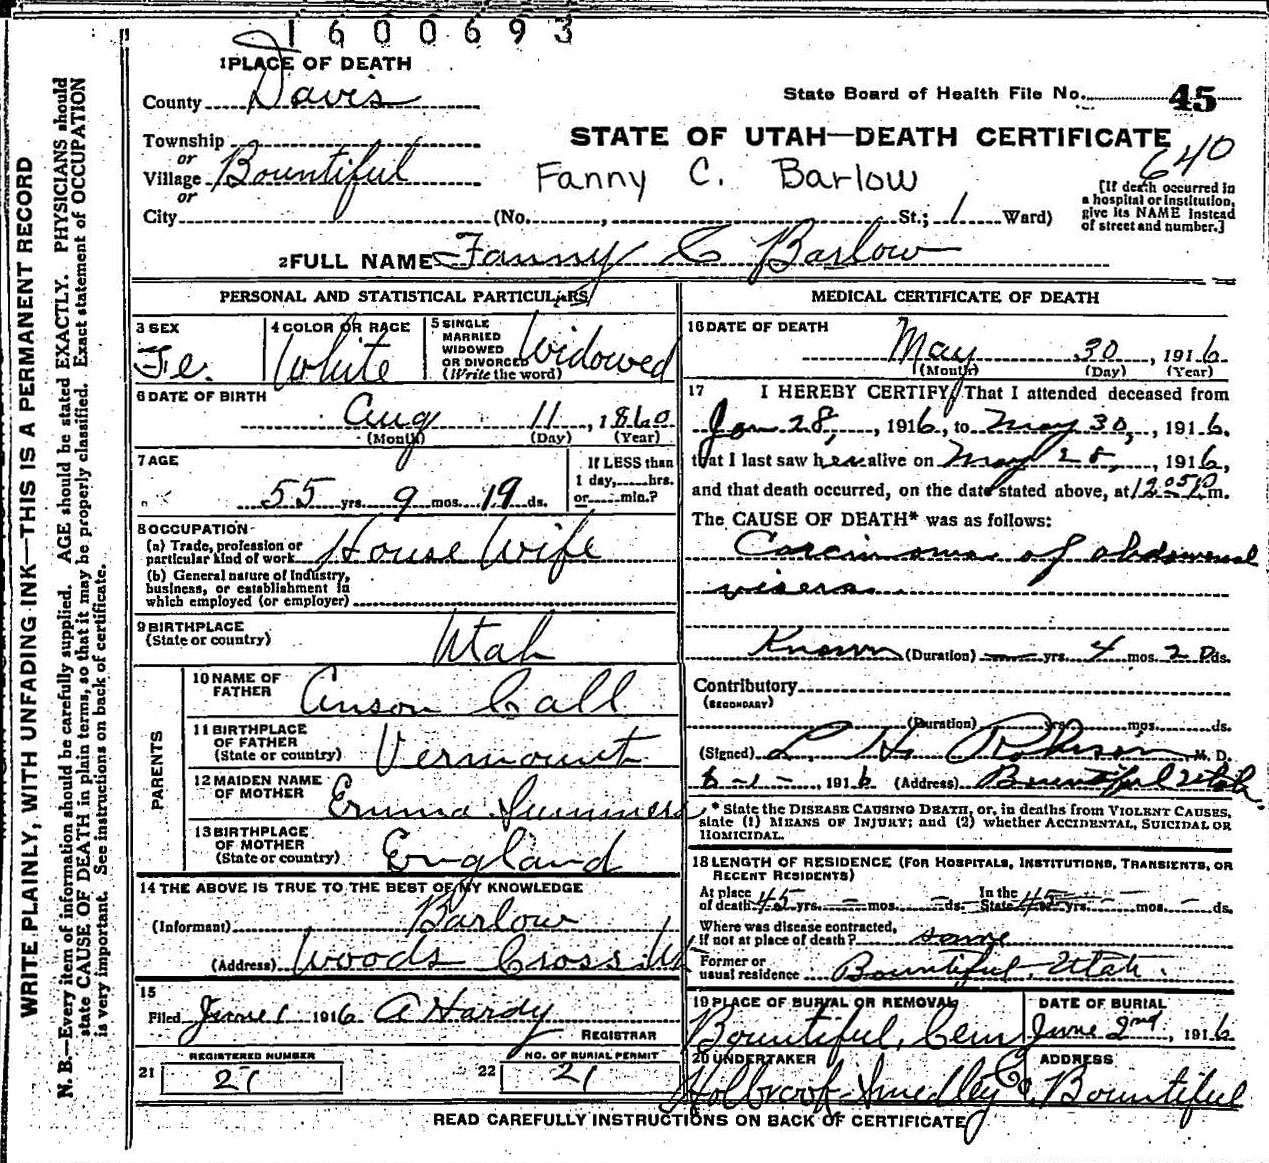 1600693
1 PLACE OF DEATH
County Davis
State Board of Health File No. 45
Township
or
Village Bountiful
or
STATE OF UTAH—DEATH CERTIFICATE
640
Fanny C. Barlow
[If death occurred in
a hospital or institution,
give its NAME instead
of street and number.]
City (No. , St.; 1 Ward)
2 FULL NAME Fanny C Barlow
PERSONAL AND STATISTICAL PARTICULARS
3 SEX
Fe.
4 COLOR OR RACE
White
5 SINGLE
MARRIED
WIDOWED
OR DIVORCED
(Write the word)
Widowed
6 DATE OF BIRTH
Aug 11, 1860
(Month) (Day) (Year)
7 AGE
55 yrs. 9 mos. 19 ds.
If LESS than
1 day, hrs.
or min.?
8 OCCUPATION
(a) Trade, profession or
particular kind of work House Wife
(b) General nature of Industry,
business, or establishment in
which employed (or employer)
9 BIRTHPLACE
(State or country) Utah
PARENTS
10 NAME OF
FATHER Anson Call
11 BIRTHPLACE
OF FATHER
(State or country) Vermount
12 MAIDEN NAME
OF MOTHER Emma Summers
13 BIRTHPLACE
OF MOTHER
(State or country) England
14 THE ABOVE IS TRUE TO THE BEST OF MY KNOWLEDGE
(Informant) Barlow
(Address) Woods Cross Ut
15
Filed June 1 1916 A Hardy
REGISTRAR
REGISTERED NUMBER
21 27
NO. OF BURIAL PERMIT
22 21
MEDICAL CERTIFICATE OF DEATH
16 DATE OF DEATH
May 30, 1916
(Month) (Day) (Year)
17 I HEREBY CERTIFY, That I attended deceased from
Jan 28, , 1916, to May 30, , 1916.
that I last saw her alive on May 28, , 1916,
and that death occurred, on the date stated above, at 12 05 P.m.
The CAUSE OF DEATH* was as follows:
Carcinoma of abdomenal
visera
Known (Duration) — yrs. 4 mos. 2 ds.
Contributory
(SECONDARY)
(Duration) yrs. mos. ds.
(Signed) L. H. M. D.
6-1-, 1916 (Address) Bountiful Utah.
* State the DISEASE CAUSING DEATH, or, in deaths from VIOLENT CAUSES,
state (1) MEANS OF INJURY; and (2) whether ACCIDENTAL, SUICIDAL OR
HOMICIDAL.
18 LENGTH OF RESIDENCE (FOR HOSPITALS, INSTITUTIONS, TRANSIENTS, OR
RECENT RESIDENTS)
At place
of death 45 yrs. — mos. — ds.
In the
State 45 yrs. — mos. — ds.
Where was disease contracted,
If not at place of death? same
Former or
usual residence Bountiful, Utah.
19 PLACE OF BURIAL OR REMOVAL
Bountiful, Cem
DATE OF BURIAL
June 2nd, 1916
20 UNDERTAKER
Holbrook Smedley Co.
ADDRESS
Bountiful
READ CAREFULLY INSTRUCTIONS ON BACK OF CERTIFICATE
WRITE PLAINLY, WITH UNFADING INK—THIS IS A PERMANENT RECORD
N. B.—Every item of information should be carefully supplied. AGE should be stated EXACTLY. PHYSICIANS should
state CAUSE OF DEATH in plain terms, so that it may be properly classified. Exact statement of OCCUPATION
is very important. See instructions on back of certificate.